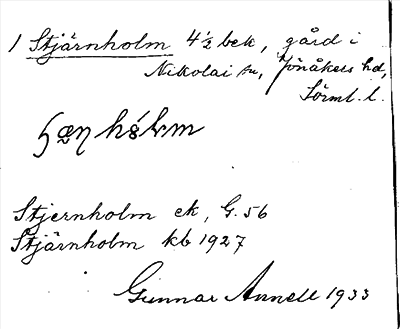 1 Stjärnholm 4½ bek, gård i
Nikolai sn, Jönåkers hd,
Sörml. l.
Stjernholm ek, G. 56
Stjärnholm kb 1927
Gunnar Annell 1933